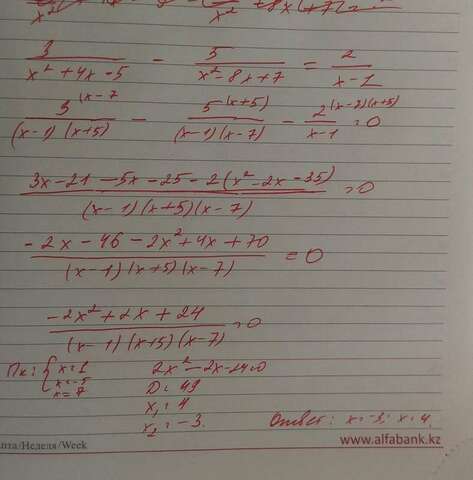 3/(x² + 4x - 5) - 5/(x² 8x + 7) = 2/(x - 1)
3^(x-7/((x-1)(x+5)) - 5^(x+5)/((x-1)(x-7)) - 2^(x-7)(x+5)/(x-1) = 0
(3x - 21 - 5x - 25 - 2(x² - 2x - 35))/((x-1)(x+5)(x-7)) = 0
(-2x - 46 - 2x² + 4x + 70)/((x-1)(x+5)(x-7)) = 0
(-2x² + 2x + 24)/((x-1)(x+5)(x-7)) = 0
x = 1 2x² - 2x - 24 = 0
x = -5 D = 49
x = 7 x₁ = 4
x₂ = -3.
Ответ: x = -3; x = 4.
пта/Неделя/Week www.alfabank.kz